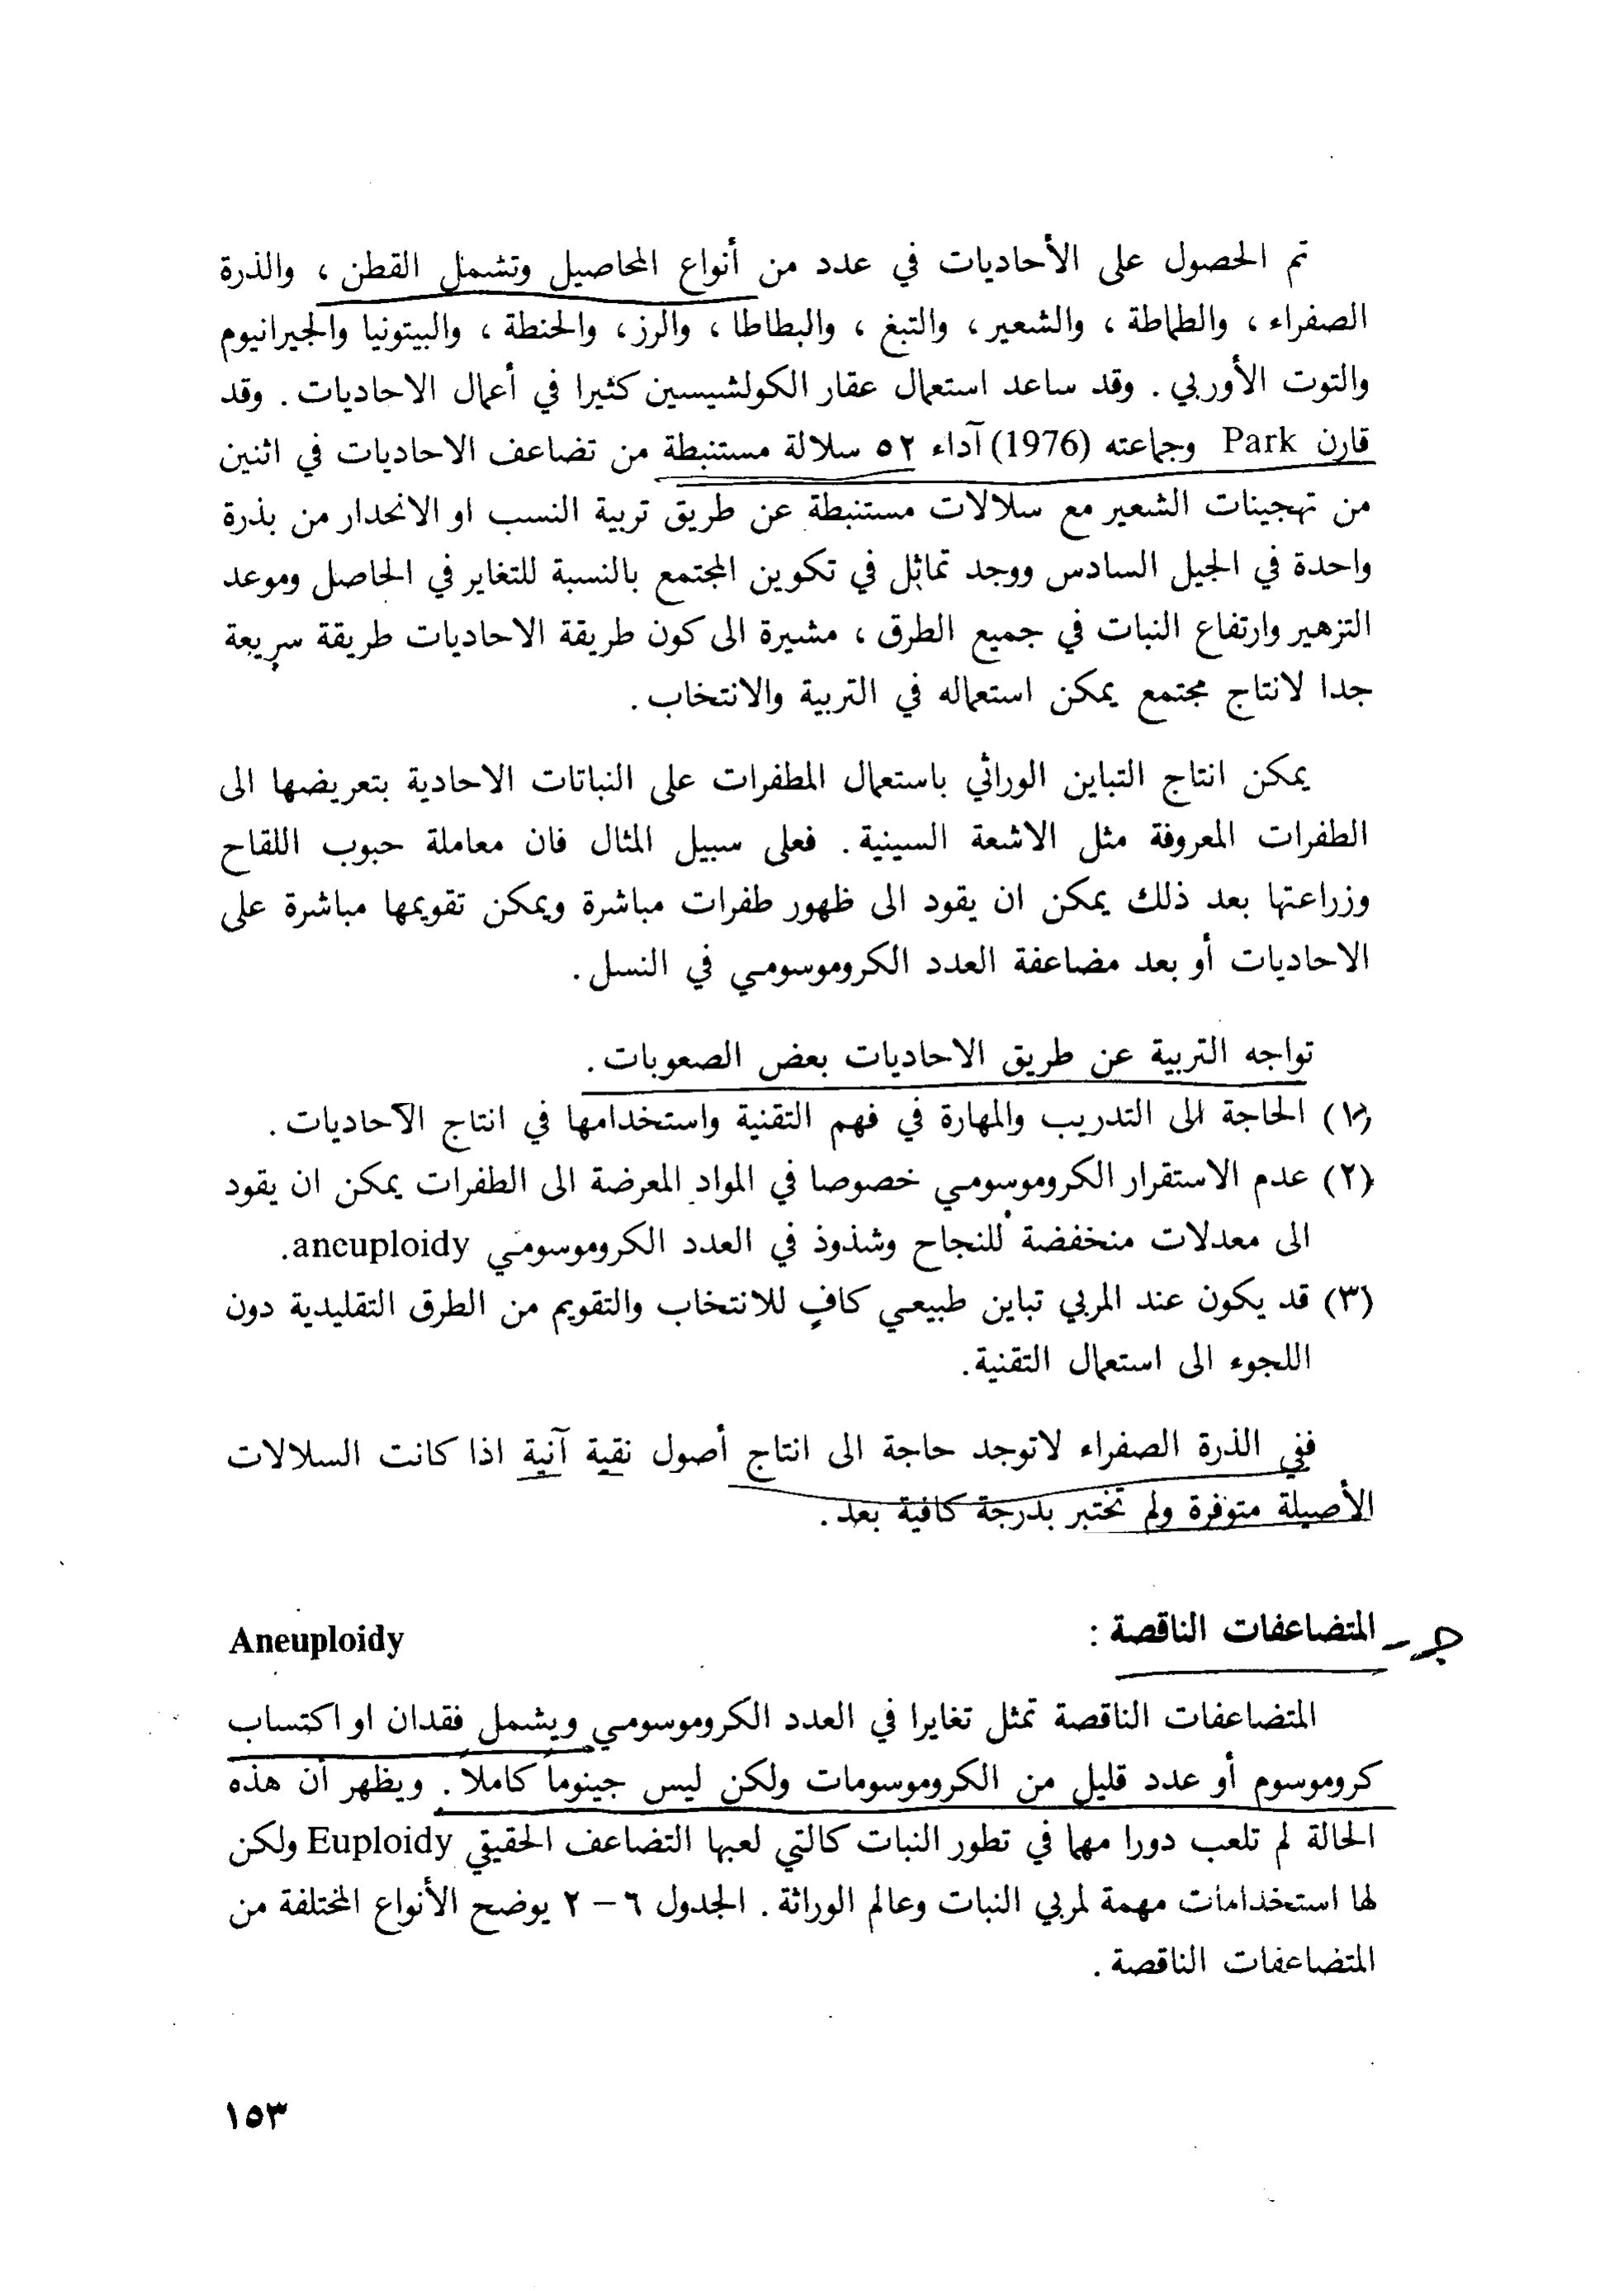 تم الحصول على الأحاديات في عدد من أنواع المحاصيل وتشمل القطن ، والذرة
الصفراء ، والطماطة ، والشعير ، والتبغ ، والبطاطا ، والرز ، والحنطة ، والبيتونيا والجيرانيوم
والتوت الأوربي . وقد ساعد استعمال عقار الكولشيسين كثيرا في أعمال الاحاديات . وقد
قارن Park وجماعته (1976) آداء ٥٢ سلالة مستنبطة من تضاعف الاحاديات في اثنين
من تهجينات الشعير مع سلالات مستنبطة عن طريق تربية النسب او الانحدار من بذرة
واحدة في الجيل السادس ووجد تماثل في تكوين المجتمع بالنسبة للتغاير في الحاصل وموعد
التزهير وارتفاع النبات في جميع الطرق ، مشيرة الى كون طريقة الاحاديات طريقة سريعة
جدا لانتاج مجتمع يمكن استعماله في التربية والانتخاب .
يمكن انتاج التباين الوراثي باستعمال المطفرات على النباتات الاحادية بتعريضها الى
الطفرات المعروفة مثل الاشعة السينية . فعلى سبيل المثال فان معاملة حبوب اللقاح
وزراعتها بعد ذلك يمكن ان يقود الى ظهور طفرات مباشرة ويمكن تقويمها مباشرة على
الاحاديات أو بعد مضاعفة العدد الكروموسومي في النسل .
تواجه التربية عن طريق الاحاديات بعض الصعوبات .
(١) الحاجة الى التدريب والمهارة في فهم التقنية واستخدامها في انتاج الآحاديات .
(٢) عدم الاستقرار الكروموسومي خصوصا في المواد المعرضة الى الطفرات يمكن ان يقود
الى معدلات منخفضة للنجاح وشذوذ في العدد الكروموسومي aneuploidy.
(٣) قد يكون عند المربي تباين طبيعي كافٍ للانتخاب والتقويم من الطرق التقليدية دون
اللجوء الى استعمال التقنية.
ففي الذرة الصفراء لاتوجد حاجة الى انتاج أصول نقية آنية اذا كانت السلالات
الأصيلة متوفرة ولم تختبر بدرجة كافية بعد .
جـ - المتضاعفات الناقصة : Aneuploidy
المتضاعفات الناقصة تمثل تغايرا في العدد الكروموسومي ويشمل فقدان او اكتساب
كروموسوم أو عدد قليل من الكروموسومات ولكن ليس جينوماً كاملاً . ويظهر أن هذه
الحالة لم تلعب دورا مهما في تطور النبات كالتي لعبها التضاعف الحقيقي Euploidy ولكن
لها استخدامات مهمة لمربي النبات وعالم الوراثة . الجدول ٦ – ٢ يوضح الأنواع المختلفة من
المتضاعفات الناقصة .
١٥٣